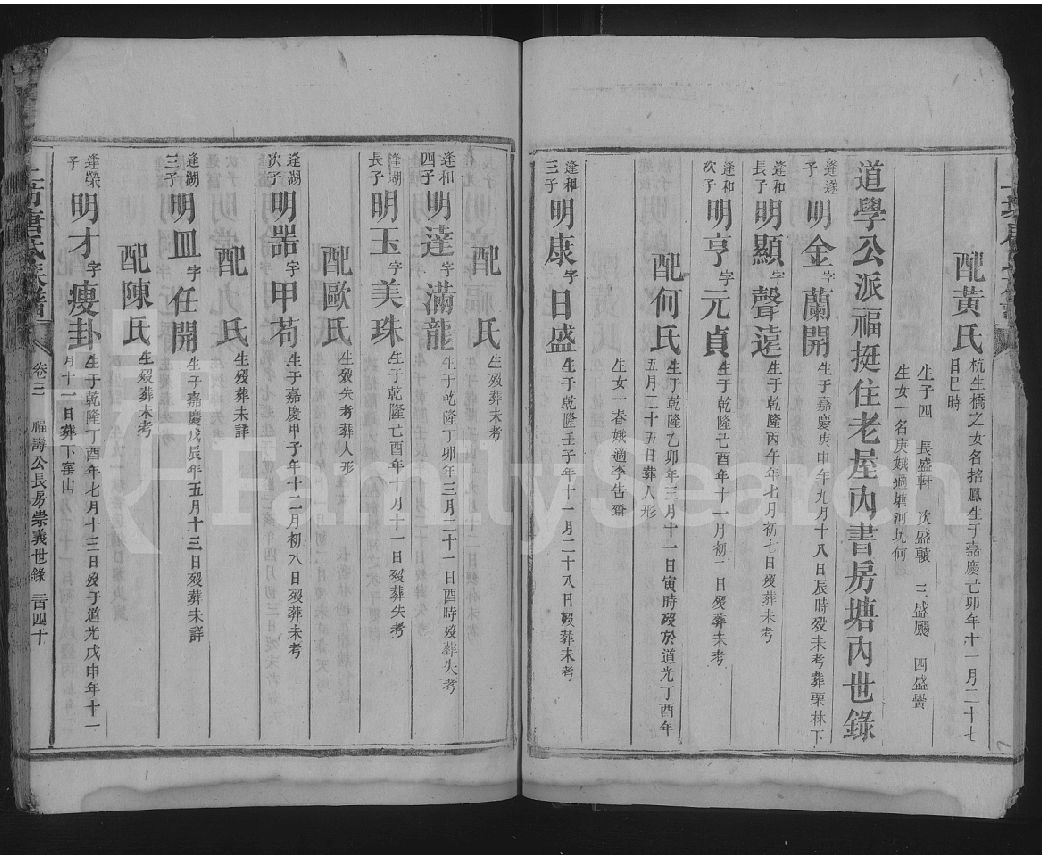 配黃氏 杭生橋之女名招鳳生于嘉慶己卯年十一月二十七日巳時
生子四 長盛軒 次盛驥 三盛颺 四盛黌
生女一名庚娥適塘河坑何
道學公派福挺住老屋內書房塘內世錄
逢遂子 明金 字蘭開 生于嘉慶庚申年九月十八日辰時歿未考葬栗林下
逢和長子 明顯 字聲遠 生于乾隆丙午年七月初七日歿葬未考
逢和次子 明亨 字元貞 生于乾隆己酉年十一月初一日歿葬未考
配何氏 生于乾隆乙卯年三月十一日寅時歿於道光丁酉年五月二十五日葬人形
生女一春娥適李告
逢和三子 明康 字日盛 生于乾隆壬子年十一月二十八日歿葬未考
配 氏 生歿葬未考
逢和四子 明達 字滿龍 生于乾隆丁卯年三月二十一日酉時歿葬失考
逢湖長子 明玉 字美珠 生于乾隆己酉年 月十一日歿葬失考
配歐氏 生歿失考葬人形
逢湖次子 明器 字甲苟 生于嘉慶甲子年十二月初八日歿葬未考
配 氏 生歿葬未詳
逢湖三子 明皿 字任開 生于嘉慶戊辰年五月十三日歿葬未詳
配陳氏 生歿葬未考
逢榮子 明才 字瘦卦 生于乾隆丁酉年七月十三日歿于道光戊申年十一月十一日葬下窰山
唐氏族譜 卷三 福壽公長房崇義世錄 百四十